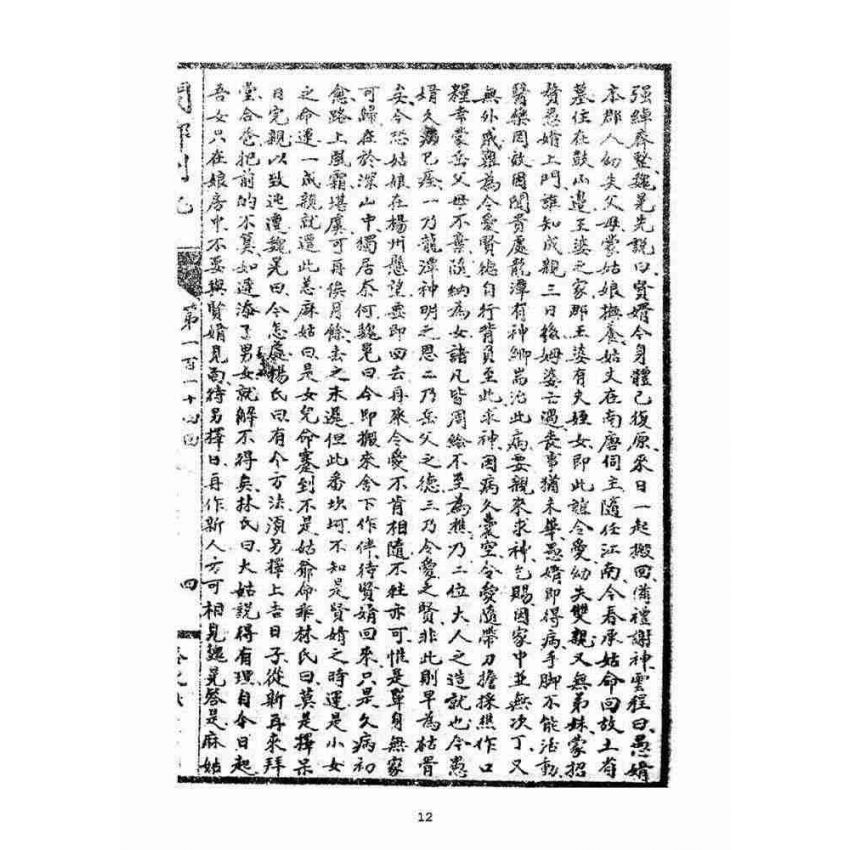 强練齊整魏晃先說曰賢婿今身體已復原來日一起搬回備禮謝神雲程曰愚婿
本郡人幼失父母蒙姑娘撫養姑丈在南唐伺主隨任江南今春承姑命回故土省
墓住在鼓山邊王婆之家那王婆有夫姪女即此誼令愛幼失雙親又無弟妹蒙招
贅愚婿上門誰知成親三日後姆婆亡過喪事猶未畢愚婿即得病手脚不能活動
醫藥罔效因聞貴處龍潭有神鄉耑治此病要親來求神乞賜因家中並無次丁又
無外戚難為令愛賢德自行背負至此求神因病久囊空令愛隨帶刀擔採樵作口
糧幸蒙岳父母不棄隨納為女諸凡皆周給不至為樵乃二位大人之造就也今愚
婿久病已痊一乃龍潭神明之恩二乃岳父之德三乃令愛之賢非此則早為枯骨
矣今恐姑娘在楊州懸望要即回去再來令愛不肯相隨不往亦可惟是單身無家
可歸在於深山中獨居奈何魏晃曰今即搬來舍下作伴待賢婿回來只是久病初
愈路上風霜堪虞可再俟月餘去之未遲但此番坎坷不知是賢婿之時運是小女
之命運一成親就遭此恙麻姑曰是女兒命蹇到不是姑爺命乖林氏曰莫是擇呆
日完親以致迍邅魏晃曰今怎處楊氏曰有个方法湏另擇上吉日子從新再來拜
堂合卺把前的不算如運添了男女就解不得矣林氏曰大姑說得有理自今日起
吾女只在娘房中不要與賢婿見面待另擇日再作新人方可相見魏晃答是麻姑
第一百一十四回
四
12